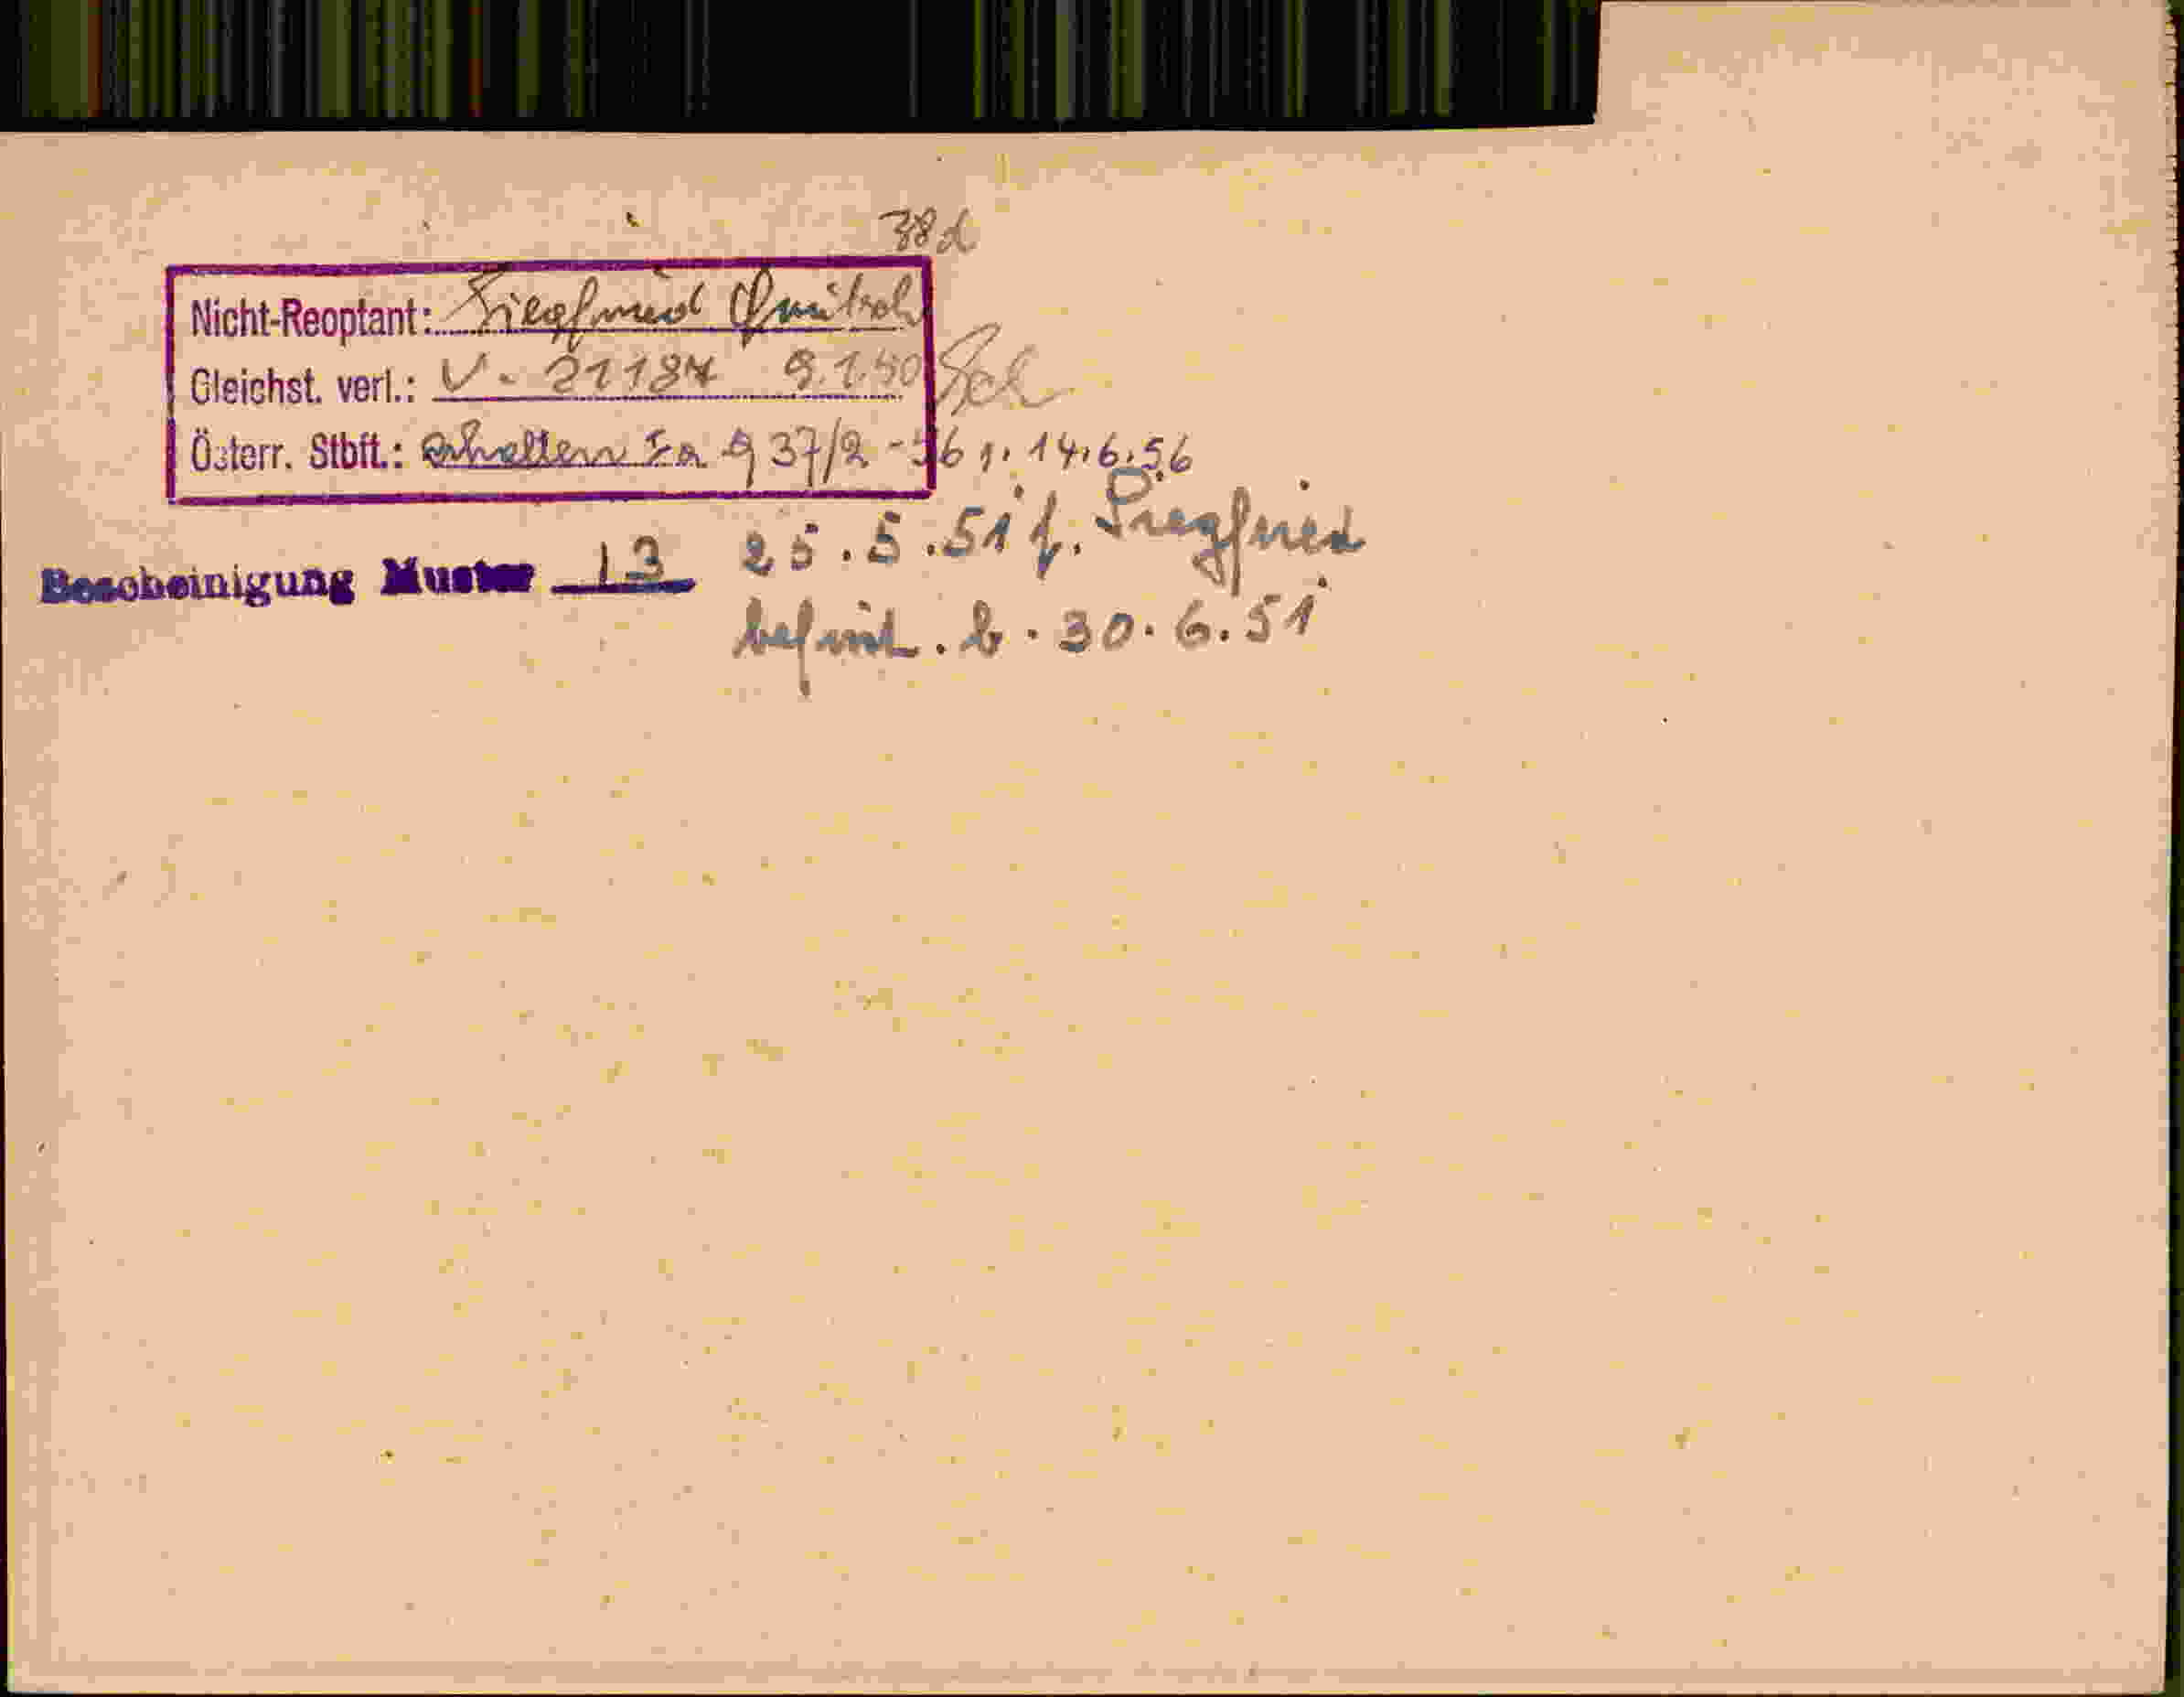 38d
Nicht-Reoptant: Siegfried
Gleichst. verl.: V. 21187 9.1.50
Österr. Stbft.: erhalten Ia 937/2-56 v. 14.6.56
25.5.51 f. Siegfried
Bescheinigung Muster 13
befrist. b. 30.6.51